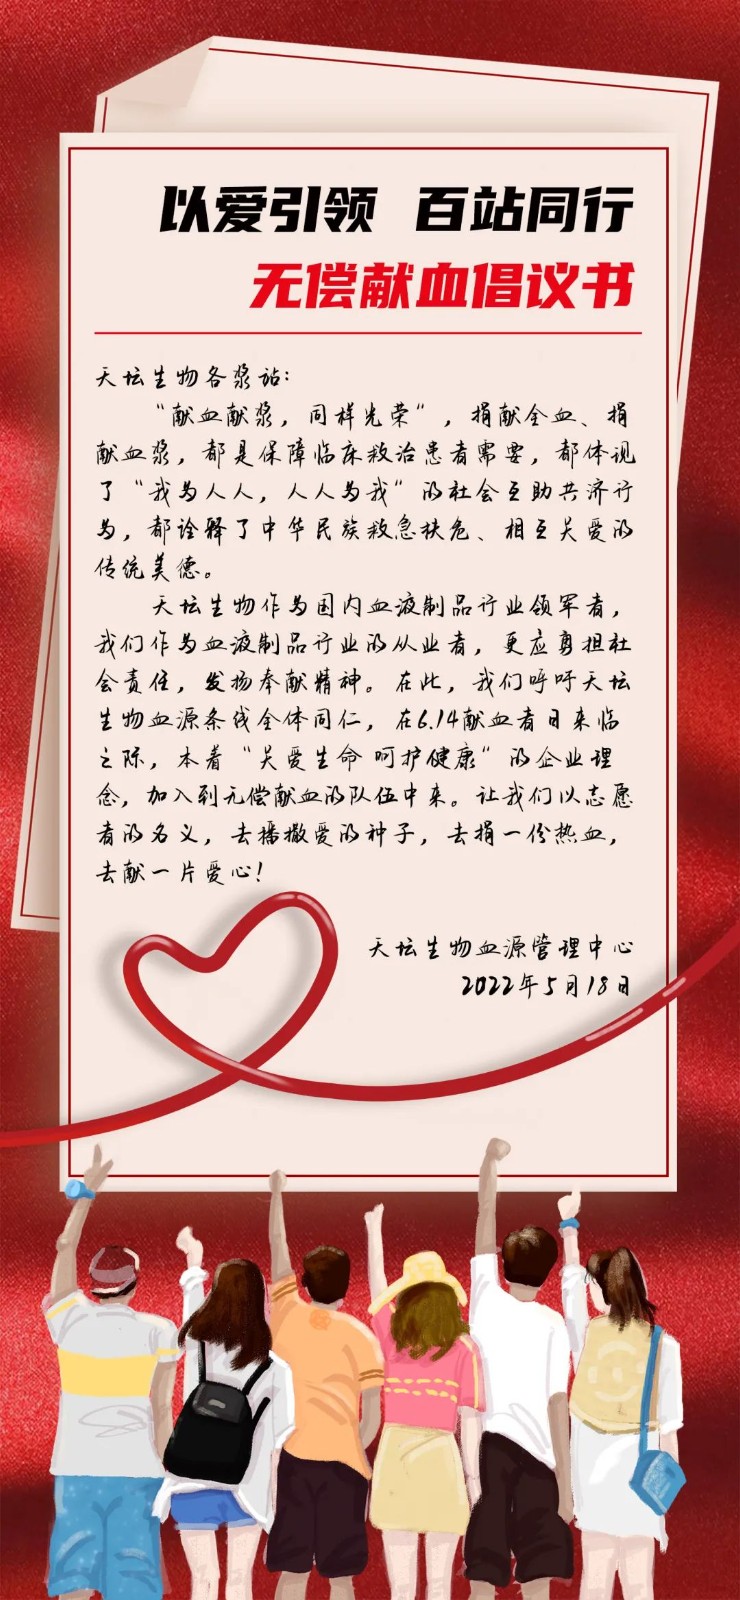 以爱引领 百站同行
无偿献血倡议书
天坛生物各浆站：
“献血献浆，同样光荣”，捐献全血、捐
献血浆，都是保障临床救治患者需要，都体现
了“我为人人，人人为我”的社会互助共济行
为，都诠释了中华民族救急扶危、相互关爱的
传统美德。
天坛生物作为国内血液制品行业领军者，
我们作为血液制品行业的从业者，更应勇担社
会责任，发扬奉献精神。在此，我们呼吁天坛
生物血源条线全体同仁，在6.14献血者日来临
之际，本着“关爱生命 呵护健康”的企业理
念，加入到无偿献血的队伍中来。让我们以志愿
者的名义，去播撒爱的种子，去捐一份热血，
去献一片爱心！
天坛生物血源管理中心
2022年5月18日